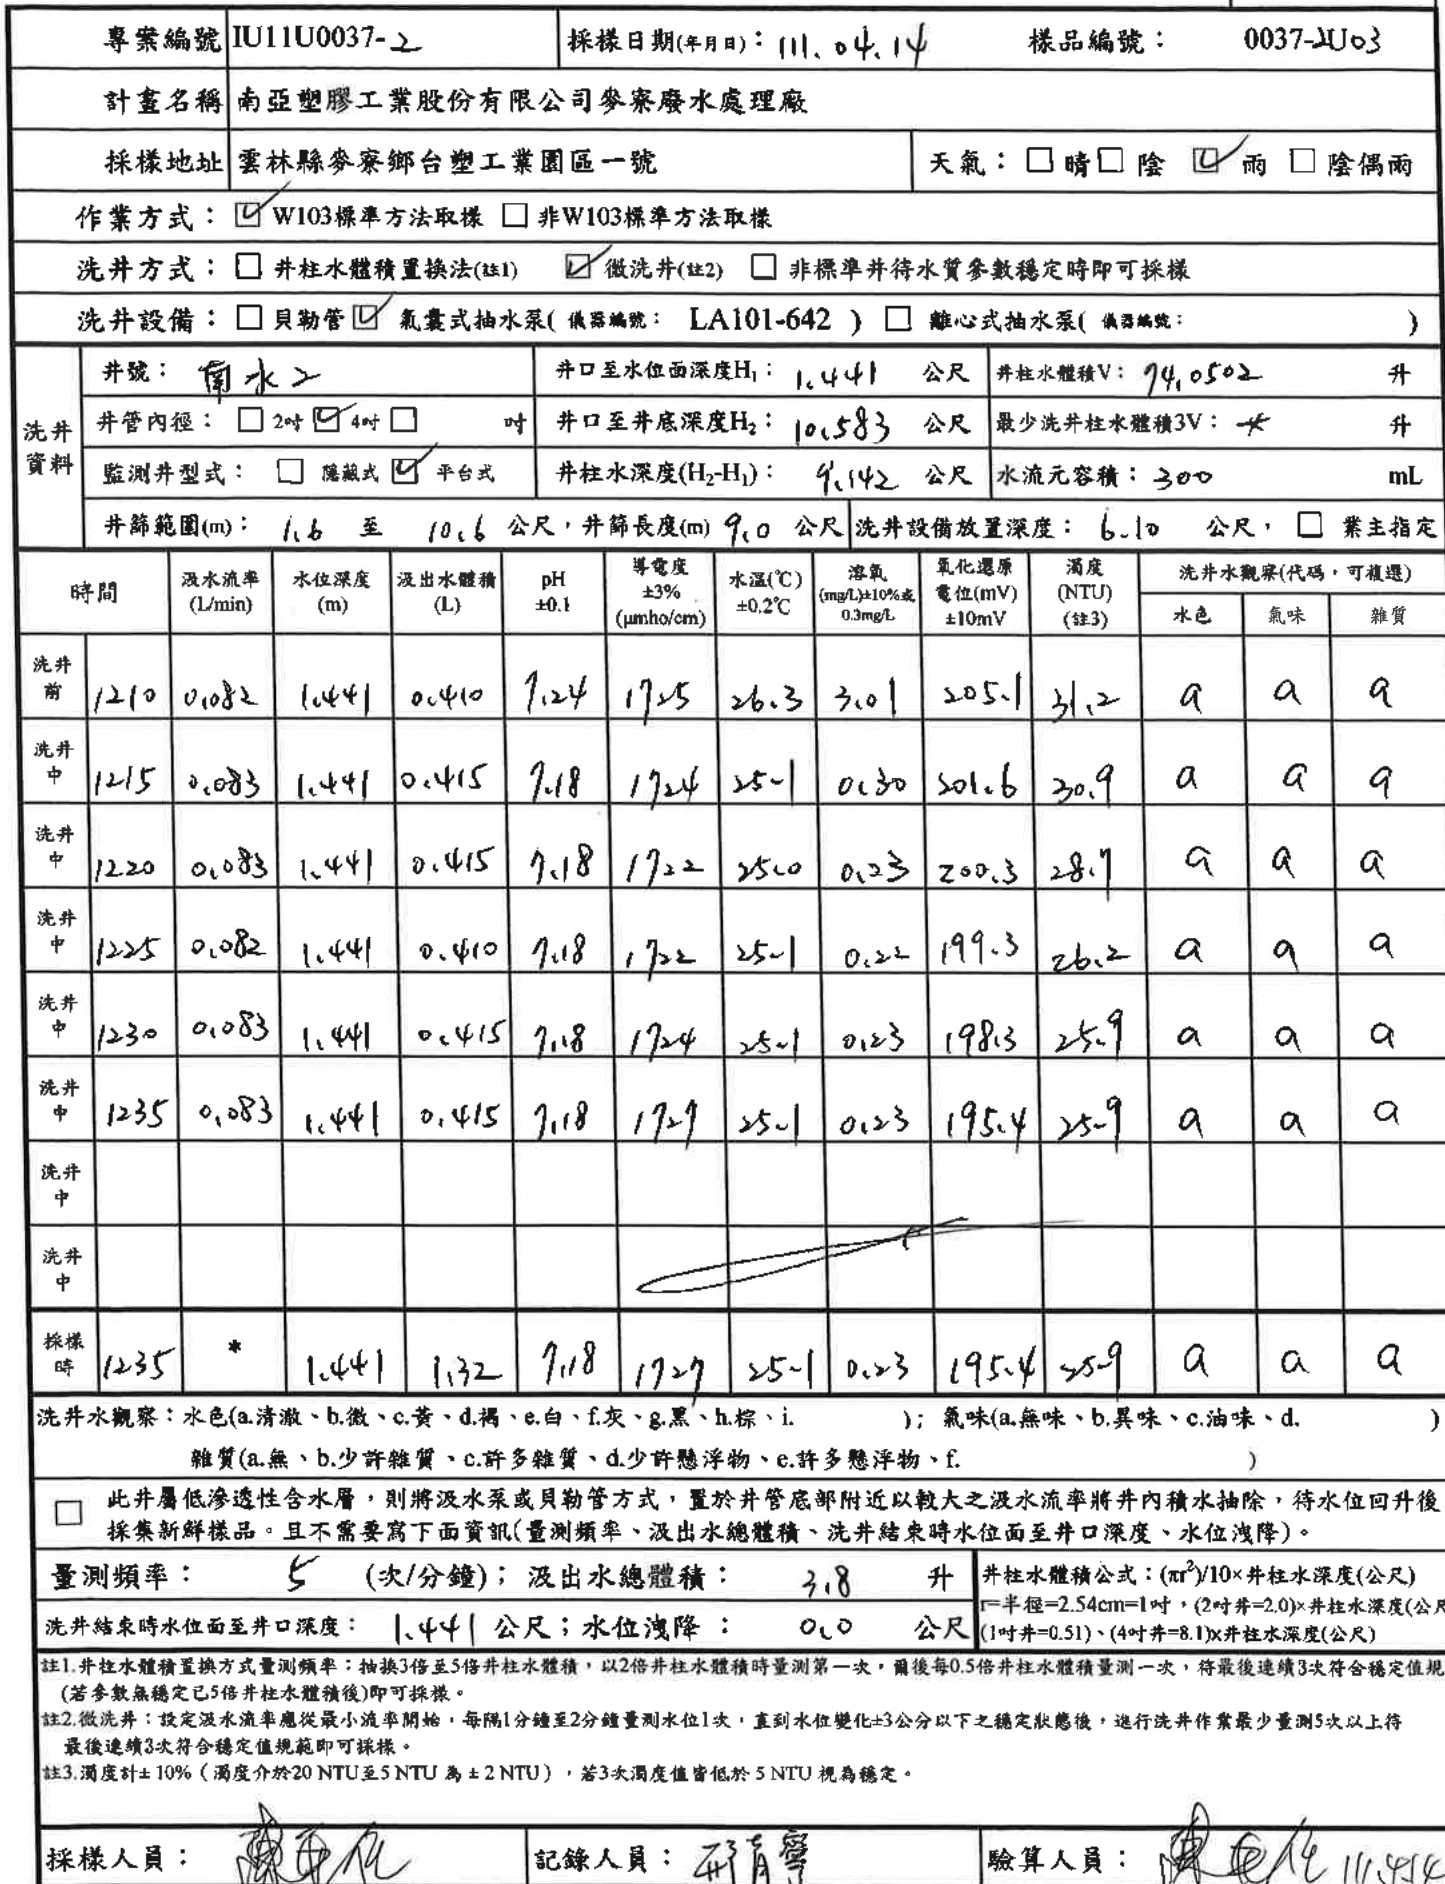 專案編號 IU11U0037-2 採樣日期(年月日)：111.04.14 樣品編號： 0037-2U03
計畫名稱 南亞塑膠工業股份有限公司麥寮廢水處理廠
採樣地址 雲林縣麥寮鄉台塑工業園區一號 天氣：□晴□陰 ☑雨 □陰偶雨
作業方式：☑W103標準方法取樣 □非W103標準方法取樣
洗井方式：□井柱水體積置換法(註1) ☑微洗井(註2) □非標準井待水質參數穩定時即可採樣
洗井設備：□貝勒管☑氣囊式抽水泵(儀器編號： LA101-642 ) □離心式抽水泵(儀器編號： )
洗井資料
井號：南水2 井口至水位面深度H₁：1.441 公尺 井柱水體積V：74.0502 升
井管內徑：□2吋☑4吋□ 吋 井口至井底深度H₂：10.583 公尺 最少洗井柱水體積3V：* 升
監測井型式：□隱藏式☑平台式 井柱水深度(H₂-H₁)：9.142 公尺 水流元容積：300 mL
井篩範圍(m)：1.6 至 10.6 公尺，井篩長度(m) 9.0 公尺 洗井設備放置深度：6.10 公尺，□ 業主指定
時間 汲水流率(L/min) 水位深度(m) 汲出水體積(L) pH±0.1 導電度±3%(μmho/cm) 水溫(℃)±0.2℃ 溶氧(mg/L)±10%或0.3mg/L 氧化還原電位(mV)±10mV 濁度(NTU)(註3) 洗井水觀察(代碼，可複選)
水色 氣味 雜質
洗井前 1210 0.082 1.441 0.410 7.24 1725 26.3 3.01 205.1 31.2 a a a
洗井中 1215 0.083 1.441 0.415 7.18 1724 25.1 0.30 201.6 30.9 a a a
洗井中 1220 0.083 1.441 0.415 7.18 1722 25.0 0.23 200.3 28.7 a a a
洗井中 1225 0.082 1.441 0.410 7.18 1722 25.1 0.22 199.3 26.2 a a a
洗井中 1230 0.083 1.441 0.415 7.18 1724 25.1 0.23 198.3 25.9 a a a
洗井中 1235 0.083 1.441 0.415 7.18 1727 25.1 0.23 195.4 25.9 a a a
洗井中
洗井中
採樣時 1235 * 1.441 1.32 7.18 1727 25.1 0.23 195.4 25.9 a a a
洗井水觀察：水色(a.清澈、b.微、c.黃、d.褐、e.白、f.灰、g.黑、h.棕、i. )；氣味(a.無味、b.異味、c.油味、d. )
雜質(a.無、b.少許雜質、c.許多雜質、d.少許懸浮物、e.許多懸浮物、f. )
□ 此井屬低滲透性含水層，則將汲水泵或貝勒管方式，置於井管底部附近以較大之汲水流率將井內積水抽除，待水位回升後
採集新鮮樣品。且不需要寫下面資訊(量測頻率、汲出水總體積、洗井結束時水位面至井口深度、水位洩降)。
量測頻率： 5 (次/分鐘)；汲出水總體積： 3.8 升
洗井結束時水位面至井口深度：1.441 公尺；水位洩降： 0.0 公尺
井柱水體積公式：(πr²)/10×井柱水深度(公尺)
r=半徑=2.54cm=1吋，(2吋井=2.0)×井柱水深度(公尺
(1吋井=0.51)、(4吋井=8.1)x井柱水深度(公尺)
註1.井柱水體積置換方式量測頻率：抽換3倍至5倍井柱水體積，以2倍井柱水體積時量測第一次，爾後每0.5倍井柱水體積量測一次，待最後連續3次符合穩定值規
(若參數無穩定已5倍井柱水體積後)即可採樣。
註2.微洗井：設定汲水流率應從最小流率開始，每隔1分鐘至2分鐘量測水位1次，直到水位變化±3公分以下之穩定狀態後，進行洗井作業最少量測5次以上待
最後連續3次符合穩定值規範即可採樣。
註3.濁度計± 10%（濁度介於20 NTU至5 NTU 為 ± 2 NTU），若3次濁度值皆低於 5 NTU 視為穩定。
採樣人員： 記錄人員： 驗算人員： 111.4.14